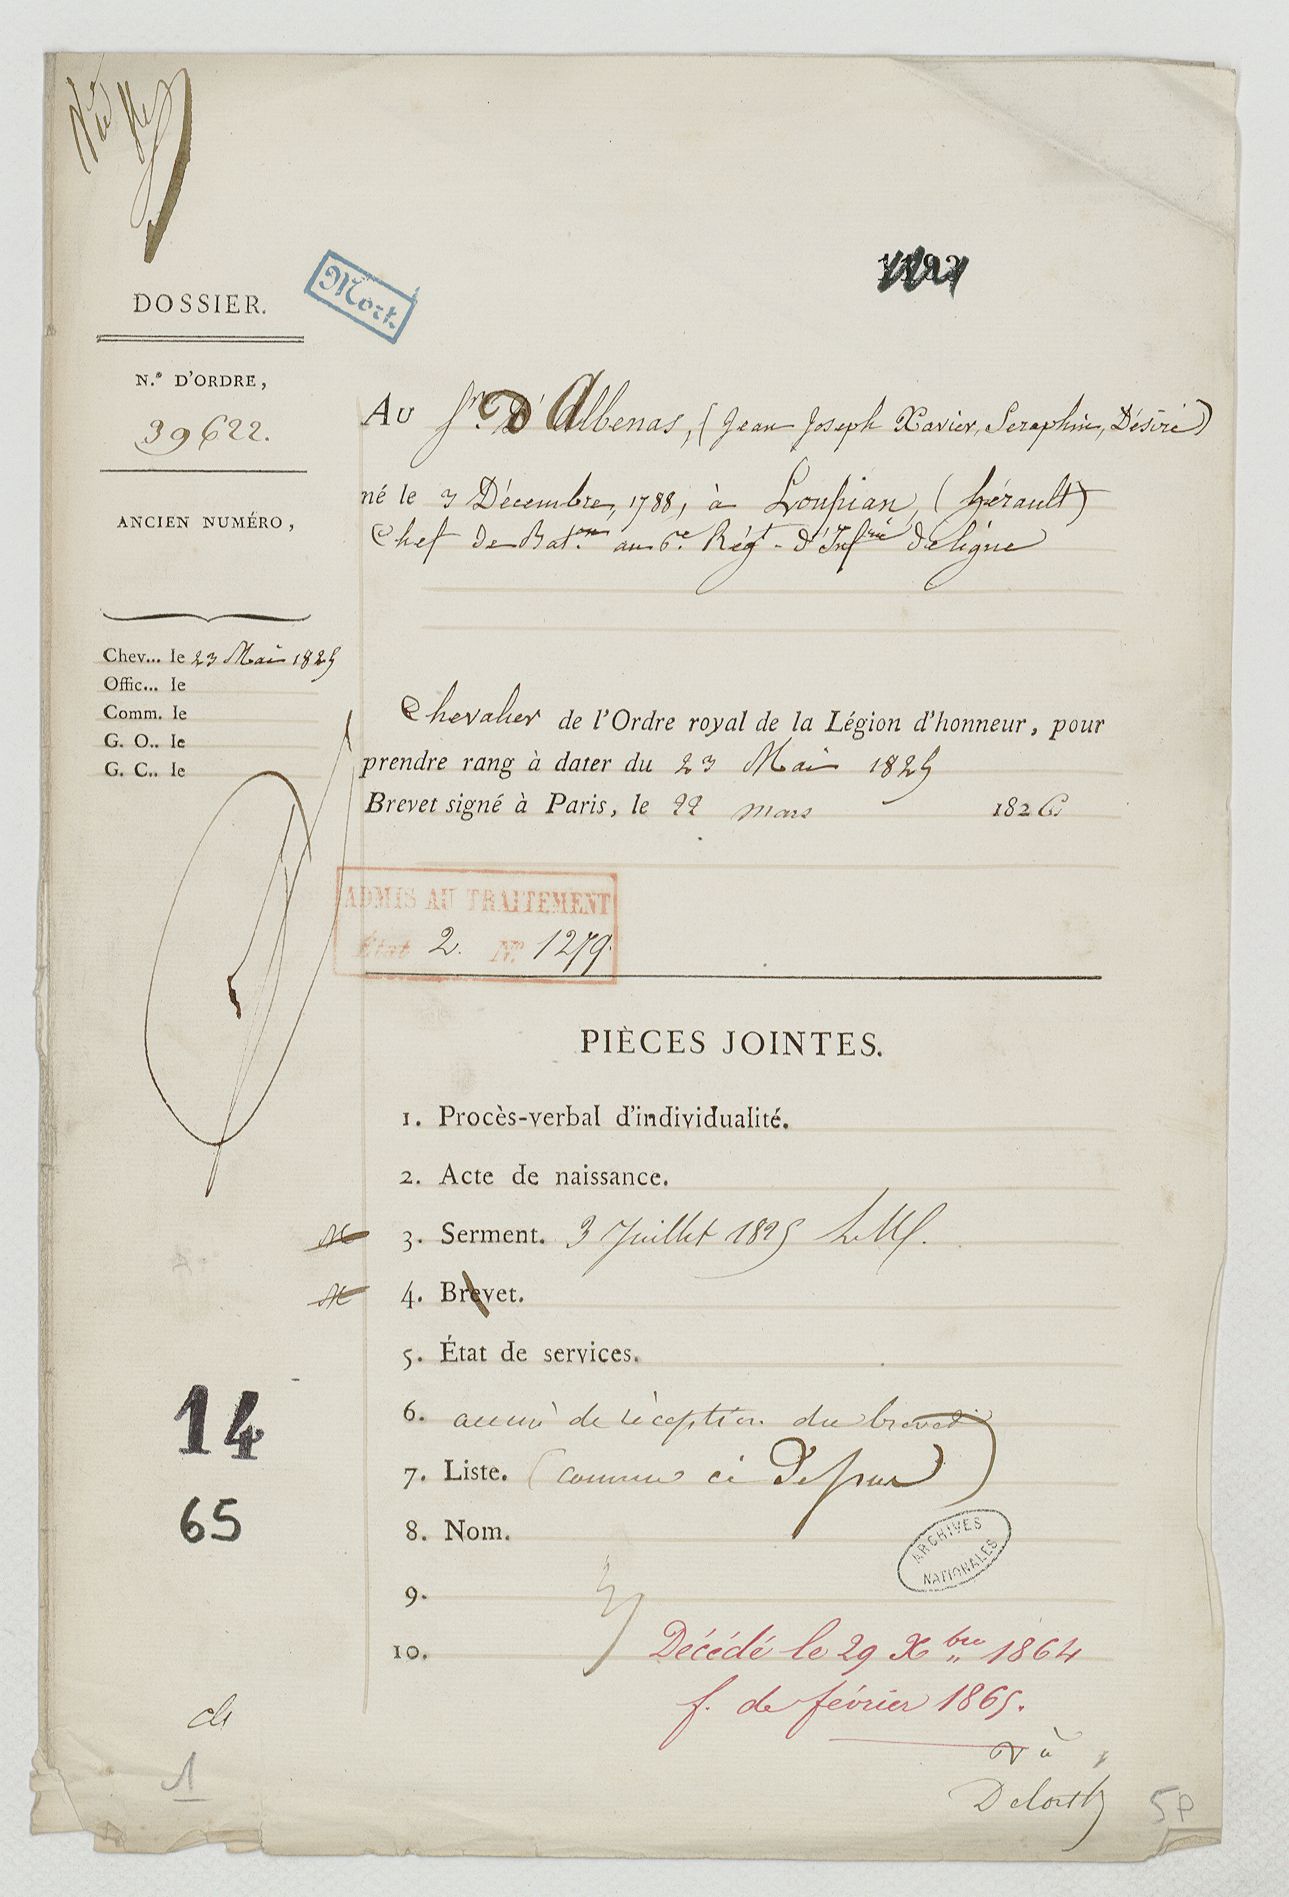 Mort.
DOSSIER.
N.° D'ORDRE,
39622.
ANCIEN NUMÉRO,
Chev... le 23 Mai 1825
Offic... le
Comm. le
G. O.. le
G. C.. le
Au Sr. D'Albenas, (Jean Joseph Xavier, Seraphin, Désiré)
né le 3 Décembre, 1788, à Loupian, (hérault)
Chef de Baton. au 6e. Régt. d'Infrie de ligne
Chevalier de l'Ordre royal de la Légion d'honneur, pour
prendre rang à dater du 23 Mai 1825
Brevet signé à Paris, le 22 mars 1826
ADMIS AU TRAITEMENT
État 2. No. 1279.
PIÈCES JOINTES.
1. Procès-verbal d'individualité.
2. Acte de naissance.
3. Serment. 3 Juillet 1825
4. Brevet.
5. État de services.
6. de réception du brevet
7. Liste. (comme ci dessus)
8. Nom.
9.
10.
14
65
ARCHIVES
NATIONALES
Décédé le 29 Xbre 1864
f. de février 1865.
1
5P